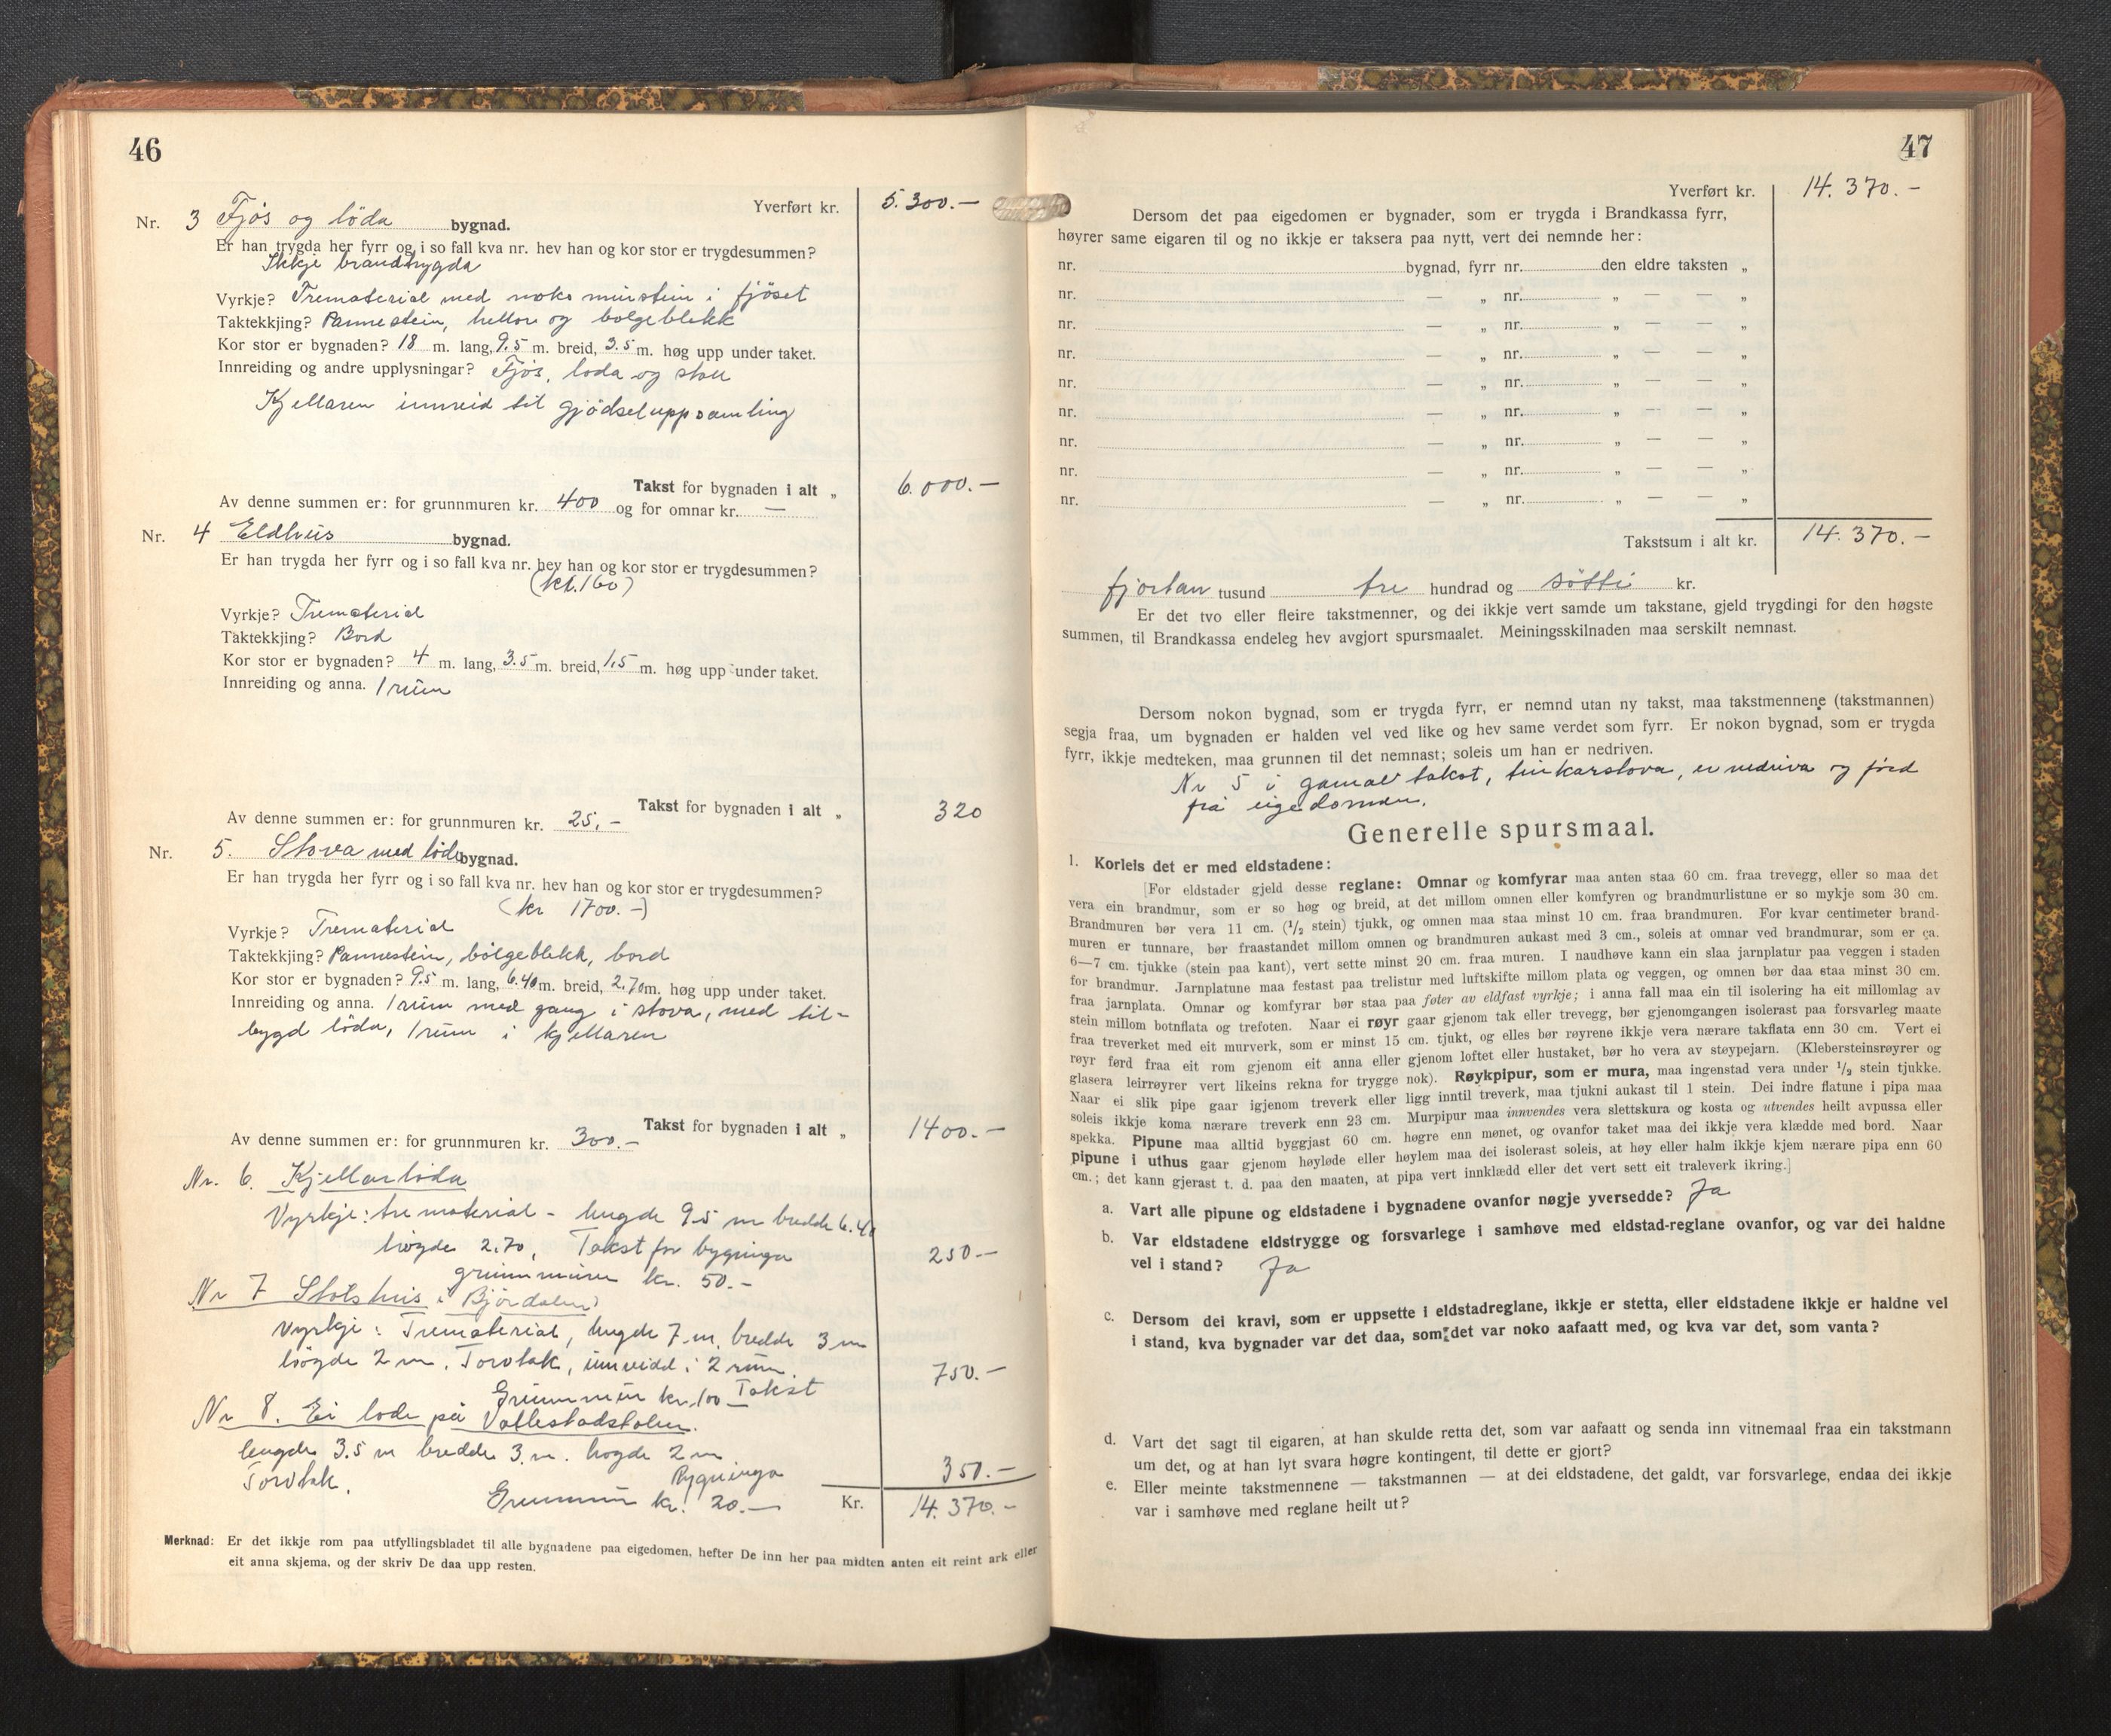 46
Yverført kr. 5.300.—
Nr. 3 Fjøs og löda bygnad.
Er han trygda her fyrr og i so fall kva nr. hev han og kor stor er trygdesummen?
Ikkje brandtrygda
Vyrkje? Tremateriał med noko murstein i fjöset
Taktekkjing? Pannestein, hellor og bolgeblekk
Kor stor er bygnaden? 18 m. lang, 9.5 m. breid, 3.5 m. høg upp under taket.
Innreiding og andre upplysningar? Fjös, löda og stall
Kjellaren innreid til gjödseluppsamling
Takst for bygnaden i alt „ 6.000.—
Av denne summen er: for grunnmuren kr. 400 og for omnar kr. —
Nr. 4 Eldhus bygnad.
Er han trygda her fyrr og i so fall kva nr. hev han og kor stor er trygdesummen?
(kr. 160)
Vyrkje? Tremateriał
Taktekkjing? Bord
Kor stor er bygnaden? 4 m. lang, 3.5 m. breid, 1.5 m. høg upp under taket.
Innreiding og anna. 1 rum
Takst for bygnaden i alt „ 320
Av denne summen er: for grunnmuren kr. 25.—
Nr. 5. Stova med löda bygnad.
Er han trygda her fyrr og i so fall kva nr. hev han og kor stor er trygdesummen?
(kr 1700.—)
Vyrkje? Trematerial
Taktekkjing? Pannestein, bölgeblekk, bord
Kor stor er bygnaden? 9.5 m. lang, 6.40 m. breid, 2.70 m. høg upp under taket.
Innreiding og anna. 1 rum med gang i stova, med til-
bygd löda, 1 rum i kjellaren
Takst for bygnaden i alt „ 1400.—
Av denne summen er: for grunnmuren kr. 300.—
Nr. 6. Kjellarlöda
Vyrkje: trematerial - lengde 9.5 m bredde 6.40
högde 2.70. Takst for bygninga 250.—
grunnmuren kr. 50.—
Nr 7 Stölshus i Bjørdalen
Vyrkje: Trematerial, lengde 7 m, bredde 3 m
högde 2 m. Torvtak, innreidd i 2 rum.
Grunnmur kr. 100.— Takst 750.—
Nr 8. Ei löde på Vallestadstølen.
lengde 3.5 m bredde 3 m. högde 2 m
Torvtak. Bygninga 350.—
Grunnmur kr. 20.—
Kr. 14.370.—
Merknad: Er det ikkje rom paa utfyllingsbladet til alle bygnadene paa eigedomen, hefter De inn her paa midten anten eit reint ark eller
eit anna skjema, og der skriv De daa upp resten.
47
Yverført kr. 14.370.—
Dersom det paa eigedomen er bygnader, som er trygda i Brandkassa fyrr,
høyrer same eigaren til og no ikkje er taksera paa nytt, vert dei nemnde her:
nr. bygnad, fyrr nr. den eldre taksten „
nr. — „ nr. „ — — „
nr. — „ nr. „ — — „
nr. — „ nr. „ — — „
nr. — „ nr. „ — — „
nr. — „ nr. „ — — „
nr. — „ nr. „ — — „
nr. — „ nr. „ — — „
nr. — „ nr. „ — — „
Takstsum i alt kr. 14.370.—
fjortan tusund tre hundrad og søtti kr.
Er det tvo eller fleire takstmenner, og dei ikkje vert samde um takstane, gjeld trygdingi for den høgste
summen, til Brandkassa endeleg hev avgjort spursmaalet. Meiningsskilnaden maa serskilt nemnast.
Dersom nokon bygnad, som er trygda fyrr, er nemnd utan ny takst, maa takstmennene (takstmannen)
segja fraa, um bygnaden er halden vel ved like og hev same verdet som fyrr. Er nokon bygnad, som er trygda
fyrr, ikkje medteken, maa grunnen til det nemnast; soleis um han er nedriven.
Nr 5 i gamal takst, tinkarstova, er nedriva og förd
frå eigedomen.
Generelle spursmaal.
1. Korleis det er med eldstadene:
[For eldstader gjeld desse reglane: Omnar og komfyrar maa anten staa 60 cm. fraa trevegg, eller so maa det
vera ein brandmur, som er so høg og breid, at det millom omnen eller komfyren og brandmurlistune er so mykje som 30 cm.
Brandmuren bør vera 11 cm. (1/2 stein) tjukk, og omnen maa staa minst 10 cm. fraa brandmuren. For kvar centimeter brand-
muren er tunnare, bør fraastandet millom omnen og brandmuren aukast med 3 cm., soleis at omnar ved brandmurar, som er ca.
6—7 cm. tjukke (stein paa kant), vert sette minst 20 cm. fraa muren. I naudhøve kann ein slaa jarnplatur paa veggen i staden
for brandmur. Jarnplatune maa festast paa trelistur med luftskifte millom plata og veggen, og omnen bør daa staa minst 30 cm.
fraa jarnplata. Omnar og komfyrar bør staa paa føter av eldfast vyrkje; i anna fall maa ein til isolering ha eit millomlag av
stein millom botnflata og trefoten. Naar ei røyr gaar gjenom tak eller trevegg, bør gjenomgangen isolerast paa forsvarleg maate
fraa treverket med eit murverk, som er minst 15 cm. tjukt, og elles bør røyrene ikkje vera nærare takflata enn 30 cm. Vert ei
røyr førd fraa eit rom gjenom eit anna eller gjenom loftet eller hustaket, bør ho vera av støypejarn. (Klebersteinsrøyrer og
glasera leirrøyrer vert likeins rekna for trygge nok). Røykpipur, som er mura, maa ingenstad vera under 1/2 stein tjukke.
Naar ei slik pipe gaar igjenom treverk eller ligg inntil treverk, maa tjukni aukast til 1 stein. Dei indre flatune i pipa maa
soleis ikkje koma nærare treverk enn 23 cm. Murpipur maa innvendes vera slettskura og kosta og utvendes heilt avpussa eller
spekka. Pipune maa alltid byggjast 60 cm. høgre enn mønet, og ovanfor taket maa dei ikkje vera klædde med bord. Naar
pipune i uthus gaar gjenom høyløde eller høylem maa dei isolerast soleis, at høy eller halm ikkje kjem nærare pipa enn 60
cm.; det kann gjerast t. d. paa den maaten, at pipa vert innklædd eller det vert sett eit traleverk ikring.]
a. Vart alle pipune og eldstadene i bygnadene ovanfor nøgje yversedde? Ja
b. Var eldstadene eldstrygge og forsvarlege i samhøve med eldstad-reglane ovanfor, og var dei haldne
vel i stand? Ja
c. Dersom dei kravi, som er uppsette i eldstadreglane, ikkje er stetta, eller eldstadene ikkje er haldne vel
i stand, kva bygnader var det daa, som det var noko aafaatt med, og kva var det, som vanta?
d. Vart det sagt til eigaren, at han skulde retta det, som var aafaatt og senda inn vitnemaal fraa ein takstmann
um det, og at han lyt svara høgre kontingent, til dette er gjort?
e. Eller meinte takstmennene — takstmannen — at dei eldstadene, det galdt, var forsvarlege, endaa dei ikkje
var i samhøve med reglane heilt ut?